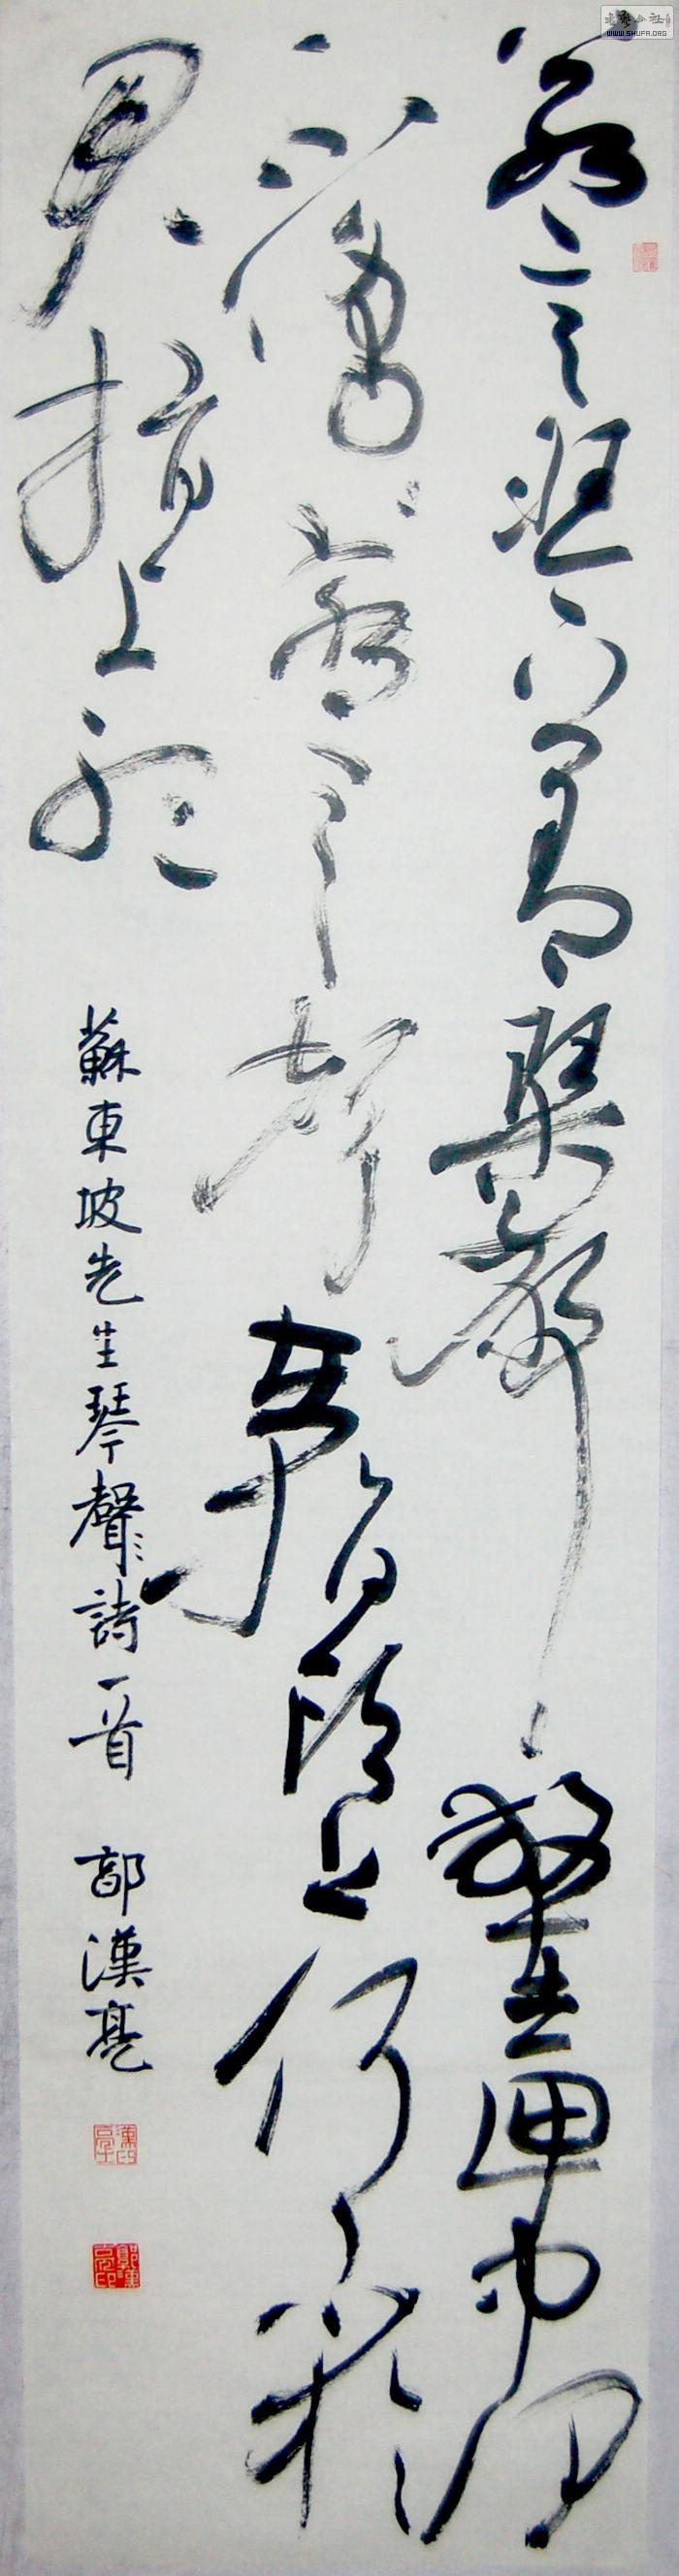 若言琴上有琴聲放在匣中何
不鳴若言聲在指頭上何不於
君指上聽
蘇東坡先生琴聲詩一首 郭漢亮
WWW.SHUFA.ORG